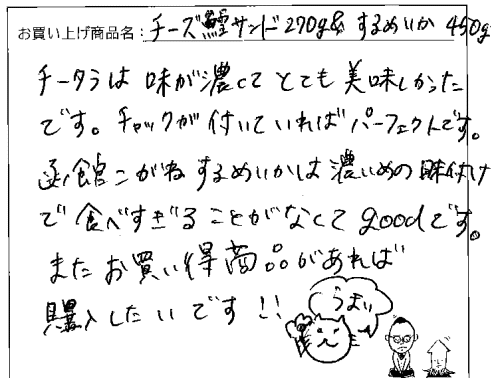 お買い上げ商品名：チーズ鱈サンド270g& するめいか 450g
チータラは 味が濃くて とても 美味しかった
です。チャックが 付いていれば パーフェクトです。
函館こがね するめいかは 濃いめの 味付け
で 食べすぎる ことがなくて goodです。
また お買い得商品があれば
購入したいです !!
うまい